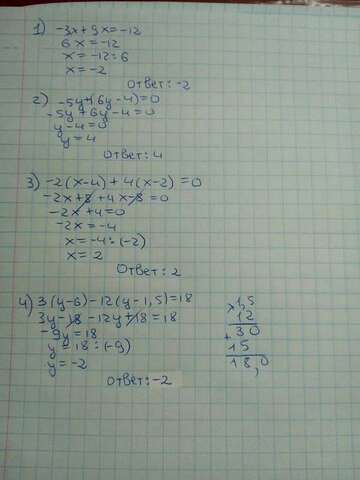 1) -3x+9x=-12
6x=-12
x=-12:6
x=-2
Ответ: -2
2) -5y+(6y-4)=0
-5y+6y-4=0
y-4=0
y=4
Ответ: 4
3) -2(x-4)+4(x-2)=0
-2x+8+4x-8=0
-2x+4=0
-2x=-4
x=-4:(-2)
x=2
Ответ: 2
4) 3(y-6)-12(y-1,5)=18
3y-18-12y+18=18
-9y=18
y=18:(-9)
y=-2
Ответ: -2
×1,5
12
30
+
15
18,0